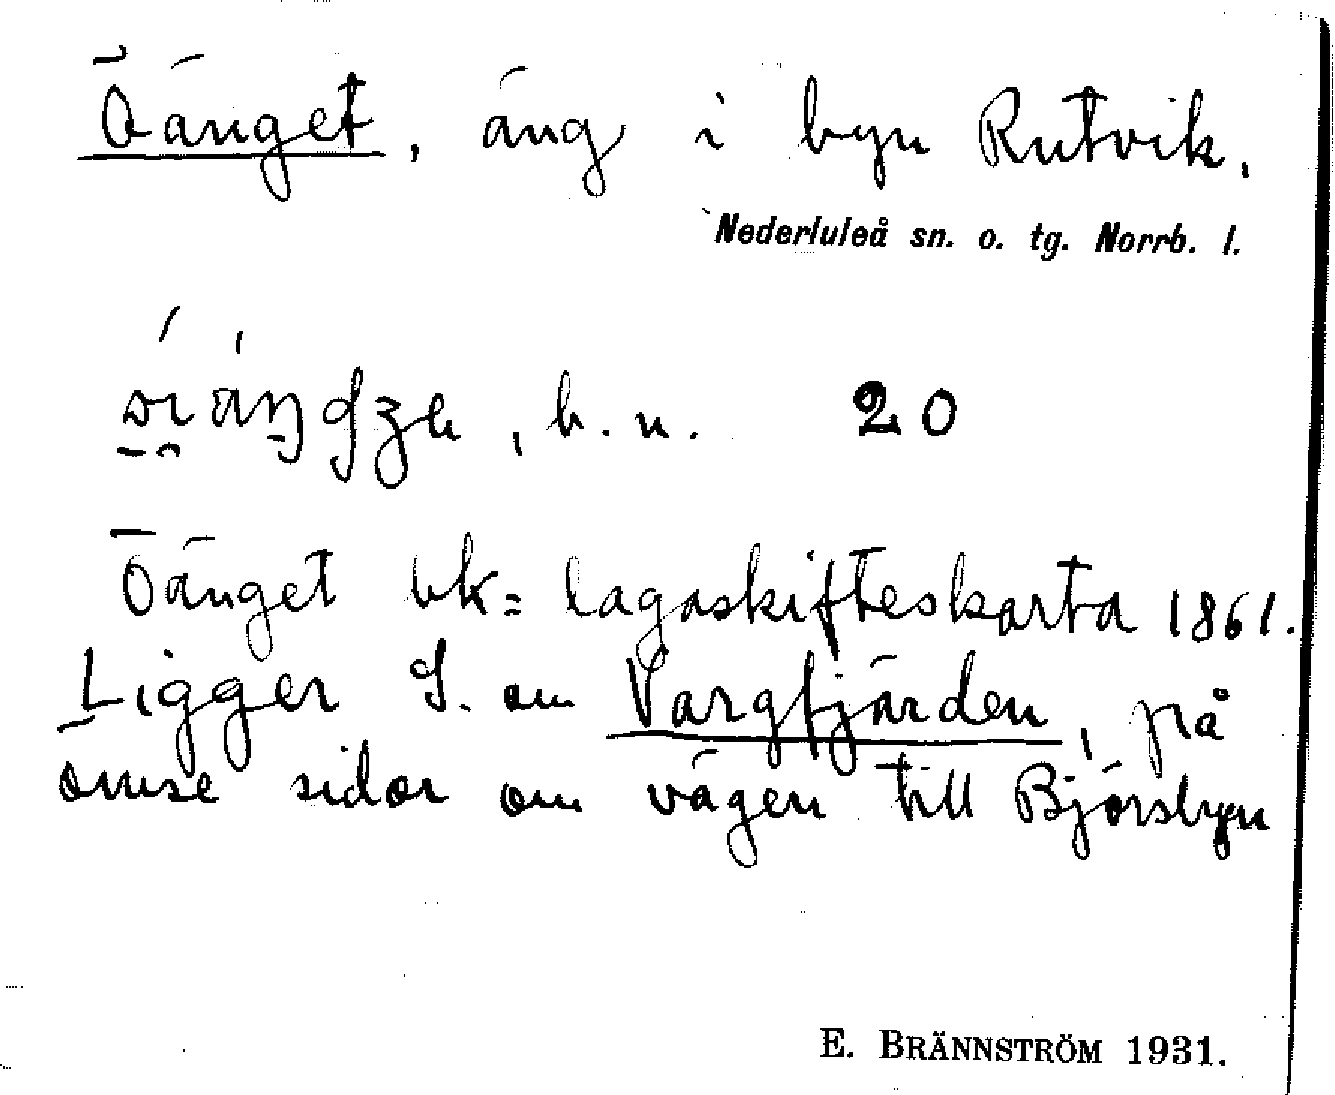 Öänget, äng i byn Rutvik.
Nederluleå sn. o. tg. Norrb. l.
, b. n. 20
Öänget bk = lagaskifteskarta 1861.
Ligger S. om Vargfjärden, på
ömse sidor om vägen till Björsbyn
E. BRÄNNSTRÖM 1931.